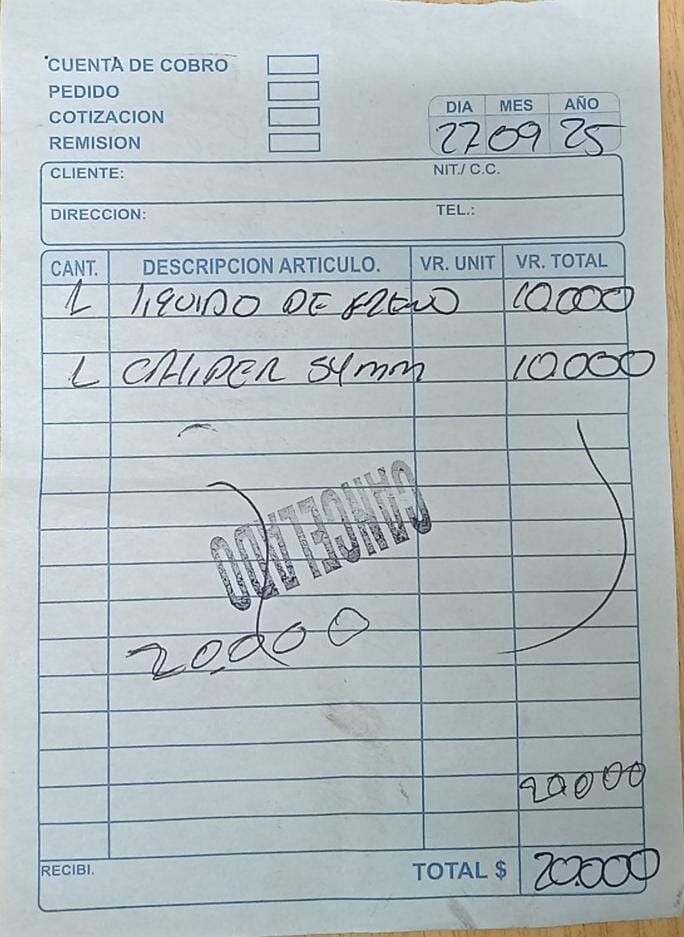 CUENTA DE COBRO
PEDIDO
COTIZACION
REMISION
DIA MES AÑO
27 09 25
CLIENTE: NIT./ C.C.
DIRECCION: TEL.:
CANT. DESCRIPCION ARTICULO. VR. UNIT VR. TOTAL
1 LIQUIDO DE FRENO 10.000
1 CALIPER 54mm 10.000
CANCELADO
20.000
20.000
RECIBI. TOTAL $ 20.000